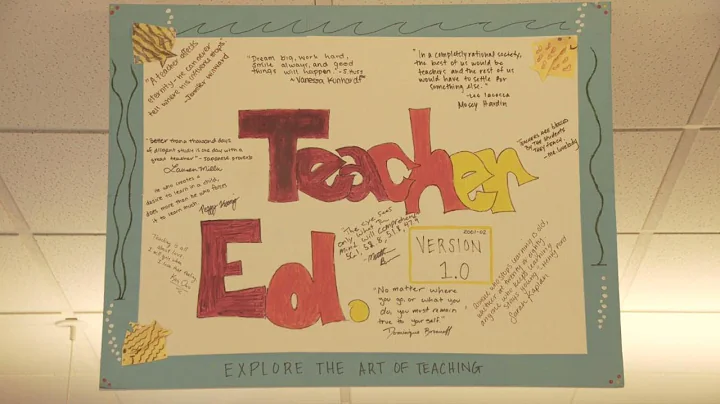 "A teacher affects
eternity - he can never
tell where his influence stops"
"Dream big, work hard,
smile always, and good
things will happen"
"In a completely rational society,
the best of us would be
teachers and the rest of us
would have to settle for
something else."
- Lee Iacocca
Macey Hardin
Teacher
"Better than a thousand days
of diligent study is one day with a
great teacher" - Japanese proverb
He who creates a
desire to learn in a child,
does more than he who forces
it to learn much.
Peggy
The eye sees
only what the
mind will comprehend
Teachers are blessed
by the students
they teach.
Ed.
2001-02
VERSION
1.0
"No matter where
you go, or what you
do, you must remain
true to yourself"
Dominique
anyone who stops learning is old,
whether at twenty or eighty
anyone who keeps learning
stays young
EXPLORE THE ART OF TEACHING